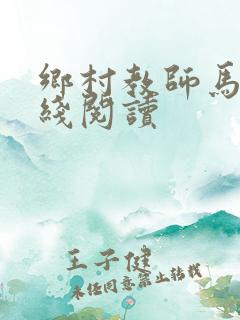 鄉村教師馬
綫閱讀
王子健
未经同意禁止转载